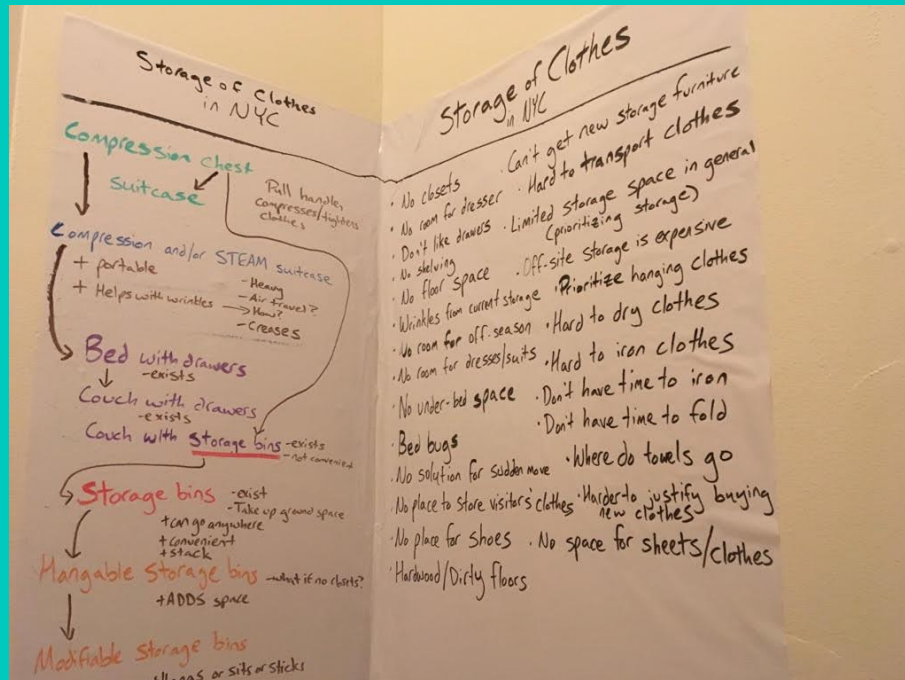 Storage of Clothes
in NYC
Compression chest
suitcase
Pull handle,
compresses/tightens
clothes
Compression and/or STEAM suitcase
+ portable
+ Helps with wrinkles
- Heavy
- Air travel?
How?
- Creases
Bed with drawers
- exists
Couch with drawers
- exists
Couch with storage bins
- exists
- not convenient
Storage bins
- exist
- Take up ground space
+ can go anywhere
+ convenient
+ stack
Hangable storage bins
- what if no closets?
+ ADDS space
Modifiable storage bins
or sits or sticks
Storage of Clothes
in NYC
· No closets
· No room for dresser
· Don't like drawers
· No shelving
· No floor space
· Wrinkles from current storage
· No room for off-season
· No room for dresses/suits
· No under-bed space
· Bed bugs
· No solution for sudden move
· No place to store visitor's clothes
· No place for shoes
· Hardwood/Dirty floors
· Can't get new storage furniture
· Hard to transport clothes
· Limited storage space in general
(prioritizing storage)
· Off-site storage is expensive
· Prioritize hanging clothes
· Hard to dry clothes
· Hard to iron clothes
· Don't have time to iron
· Don't have time to fold
· Where do towels go
· Harder to justify buying
new clothes
· No space for sheets/clothes